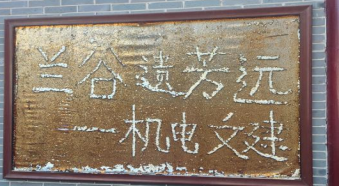 兰谷遗芳远
一机电文建